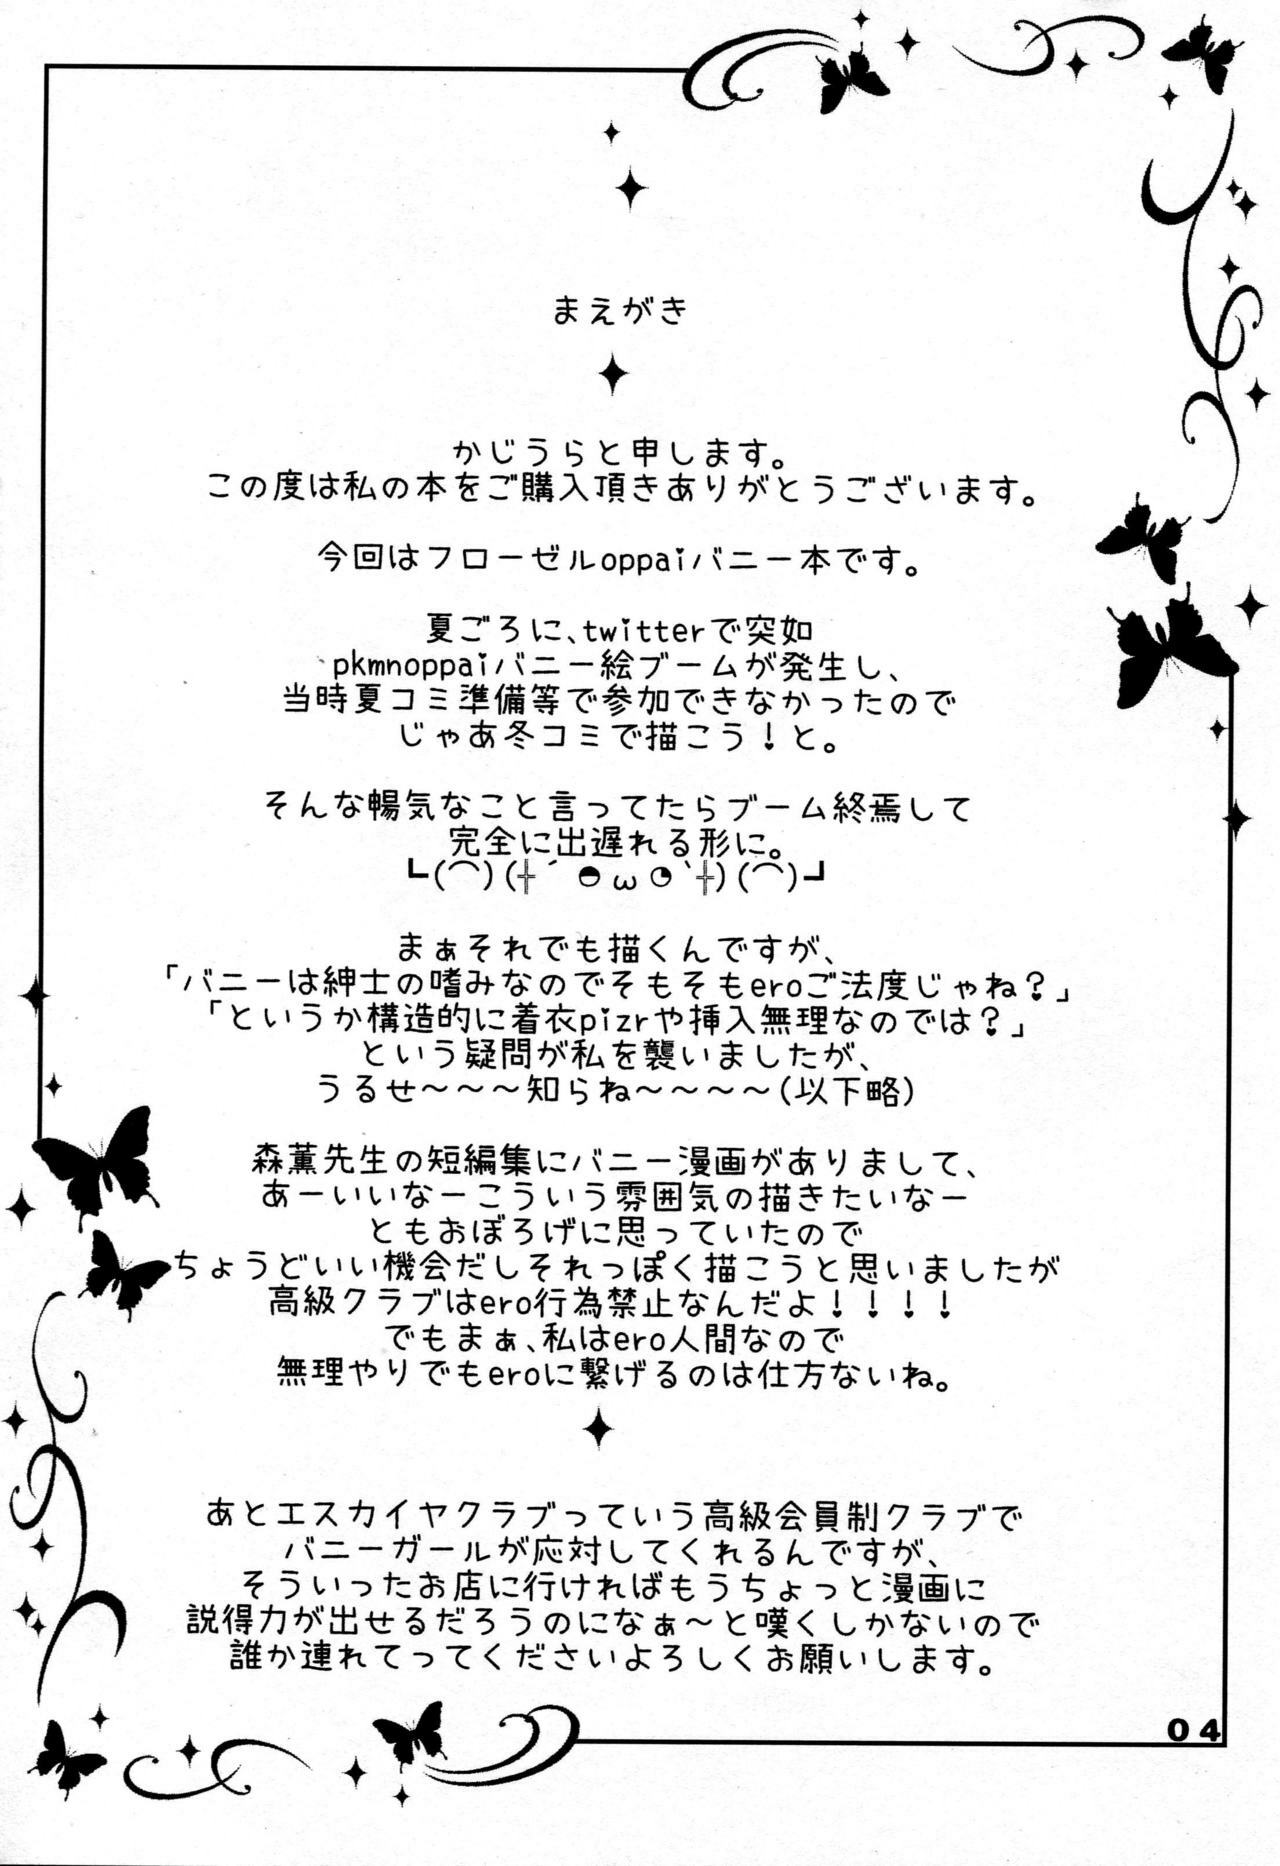 まえがき
かじうらと申します。
この度は私の本をご購入頂きありがとうございます。
今回はフローゼルoppaiバニー本です。
夏ごろに、twitterで突如
pkmnoppaiバニー絵ブームが発生し、
当時夏コミ準備等で参加できなかったので
じゃあ冬コミで描こう！と。
そんな暢気なこと言ってたらブーム終焉して
完全に出遅れる形に。
┗(⌒)(╬´◓ω◔`╬)(⌒)┛
まぁそれでも描くんですが、
「バニーは紳士の嗜みなのでそもそもeroご法度じゃね？」
「というか構造的に着衣pizrや挿入無理なのでは？」
という疑問が私を襲いましたが、
うるせ～～～知らね～～～～(以下略)
森薫先生の短編集にバニー漫画がありまして、
あーいいなーこういう雰囲気の描きたいなー
ともおぼろげに思っていたので
ちょうどいい機会だしそれっぽく描こうと思いましたが
高級クラブはero行為禁止なんだよ！！！！
でもまぁ、私はero人間なので
無理やりでもeroに繋げるのは仕方ないね。
あとエスカイヤクラブっていう高級会員制クラブで
バニーガールが応対してくれるんですが、
そういったお店に行ければもうちょっと漫画に
説得力が出せるだろうのになぁ～と嘆くしかないので
誰か連れてってくださいよろしくお願いします。
04